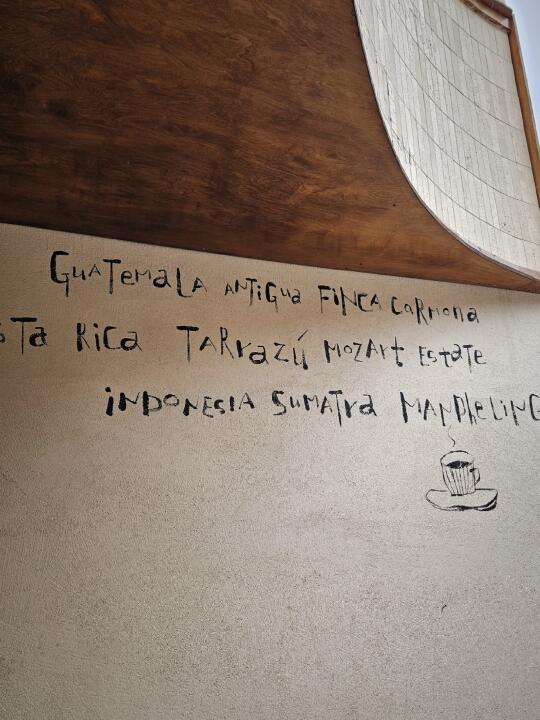 GUATEMALA ANTIGUA FINCA CARMONA
STA RICA TARRAZÚ MOZART ESTATE
INDONESIA SUMATRA MANDHELING